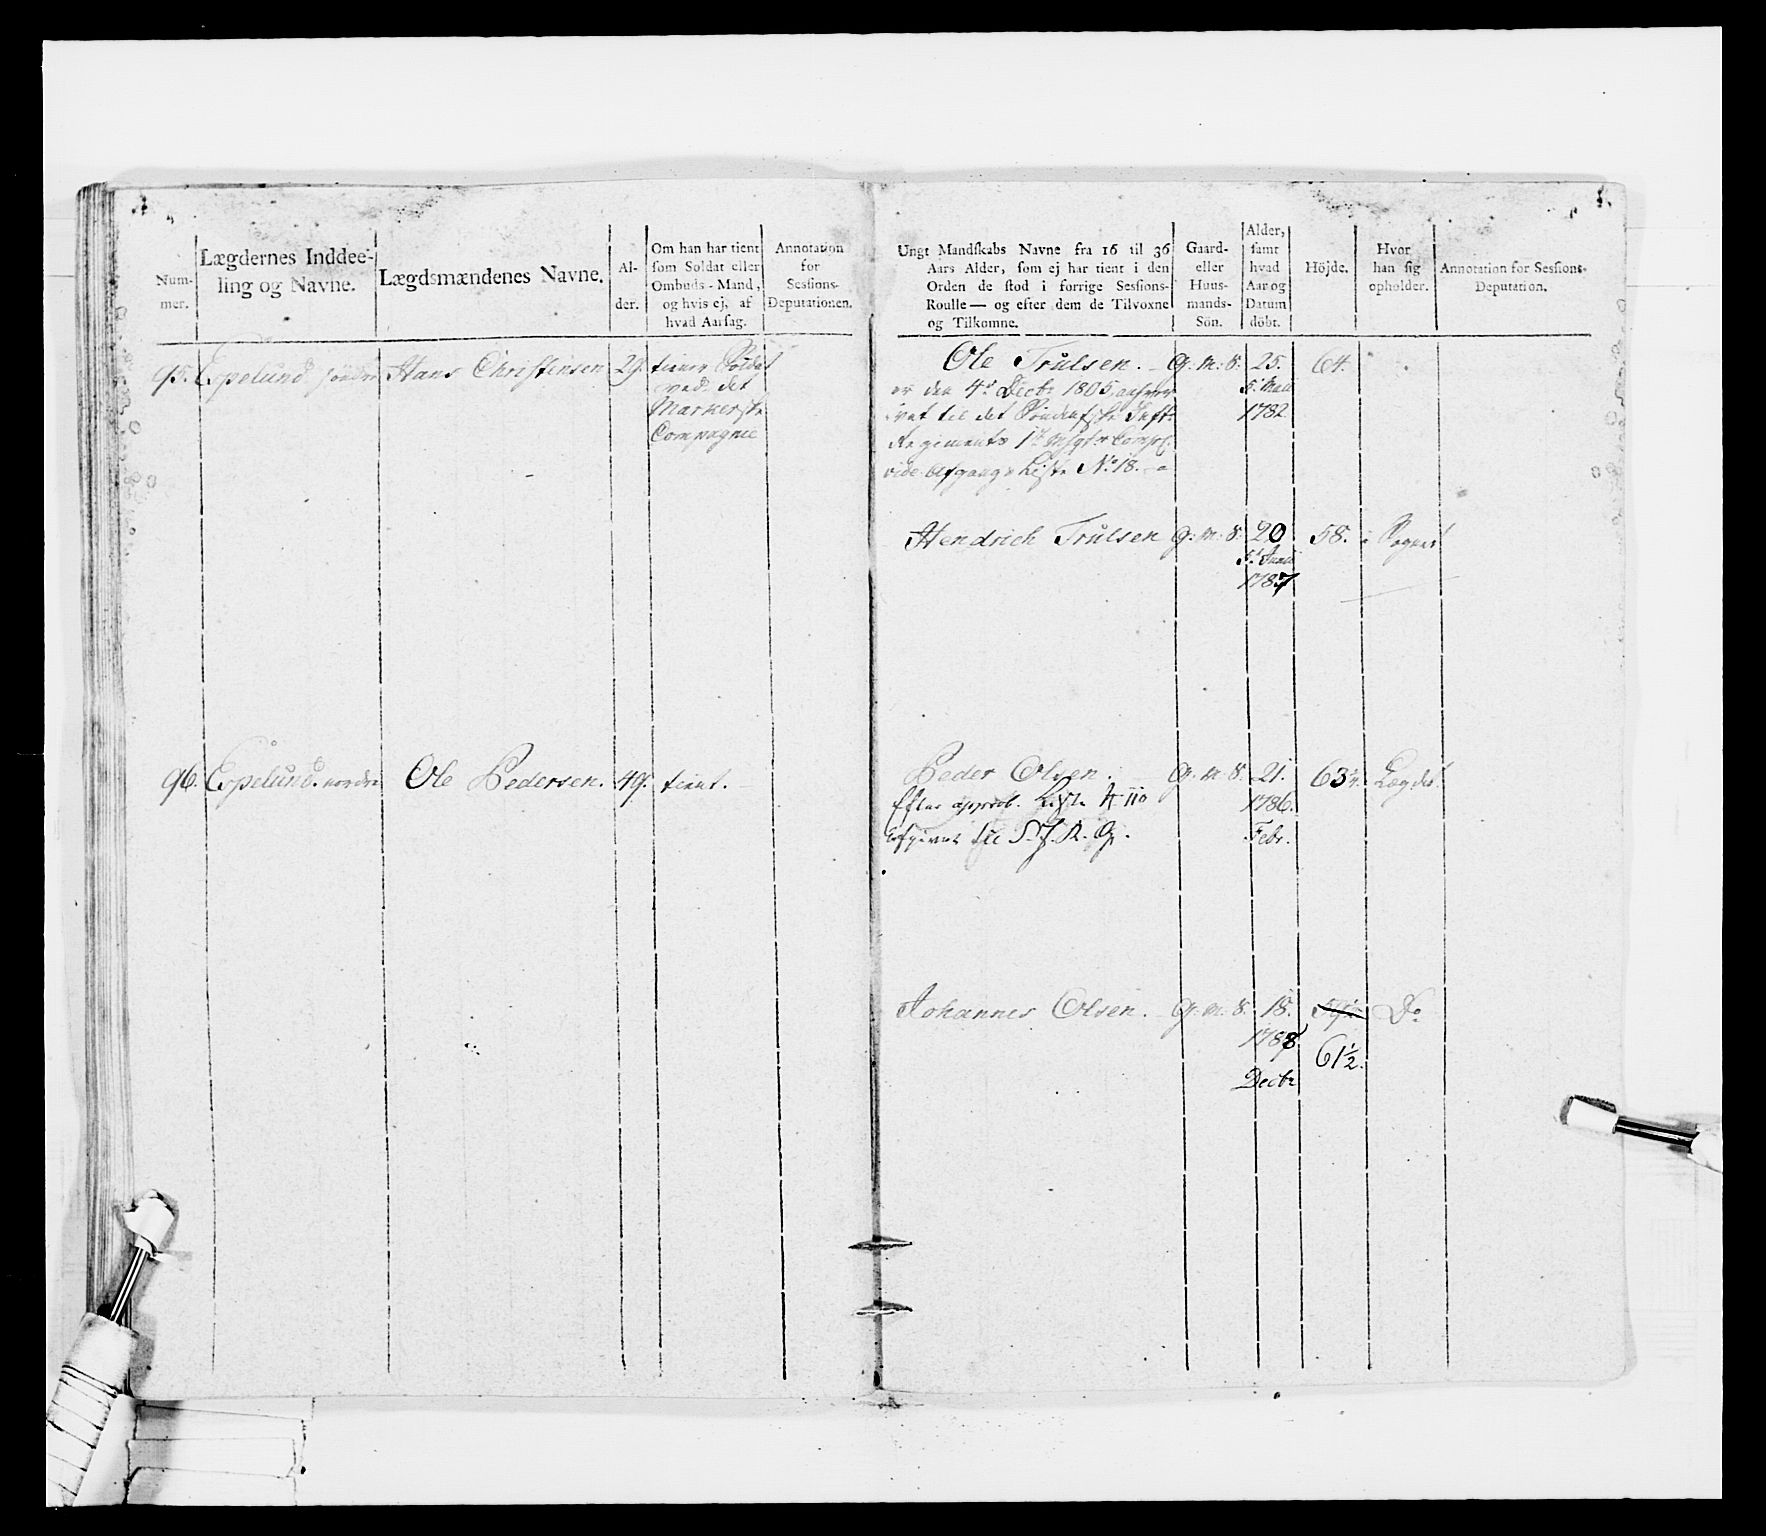 Num-
mer.
Lægdernes Inddee-
ling og Navne.
Lægdsmændenes Navne.
Al-
der.
Om han har tient
som Soldat eller
Ombuds-Mand,
og hvis ej, af
hvad Aarsag.
Annotation
for
Sessions-
Deputationen.
95. Espelund søndre Hans Christensen 29. tiener Soldat
ved det
Markerske
Compagnie
96. Espelund nordre Ole Pedersen. 49. tient.
Ungt Mandskabs Navne fra 16 til 36
Aars Alder, som ej har tient i den
Orden de stod i forrige Sessions-
Roulle — og efter dem de Tilvoxne
og Tilkomne.
Gaard-
eller
Huus-
mands-
Sön.
Alder,
samt
hvad
Aar og
Datum
döbt.
Höjde.
Hvor
han sig
opholder.
Annotation for Sessions-
Deputation.
Ole Trulsen. G. m. S. 25. 64.
er den 4de Decbr 1805
1782
til det Søndenfjelske Inft.
Regiments 1te Comp.
vide Afgangs Liste No. 18.
Hendrich Trulsen G. m. S. 20 58. i Sognet
1787
Peder Olsen. G. m. S. 21. 63 Lægdet
Efter approb. Liste 110 1786.
Afgivet til S. J. R. Febr.
Johannes Olsen. G. m. S. 18. Do
1788
61½.
Decbr